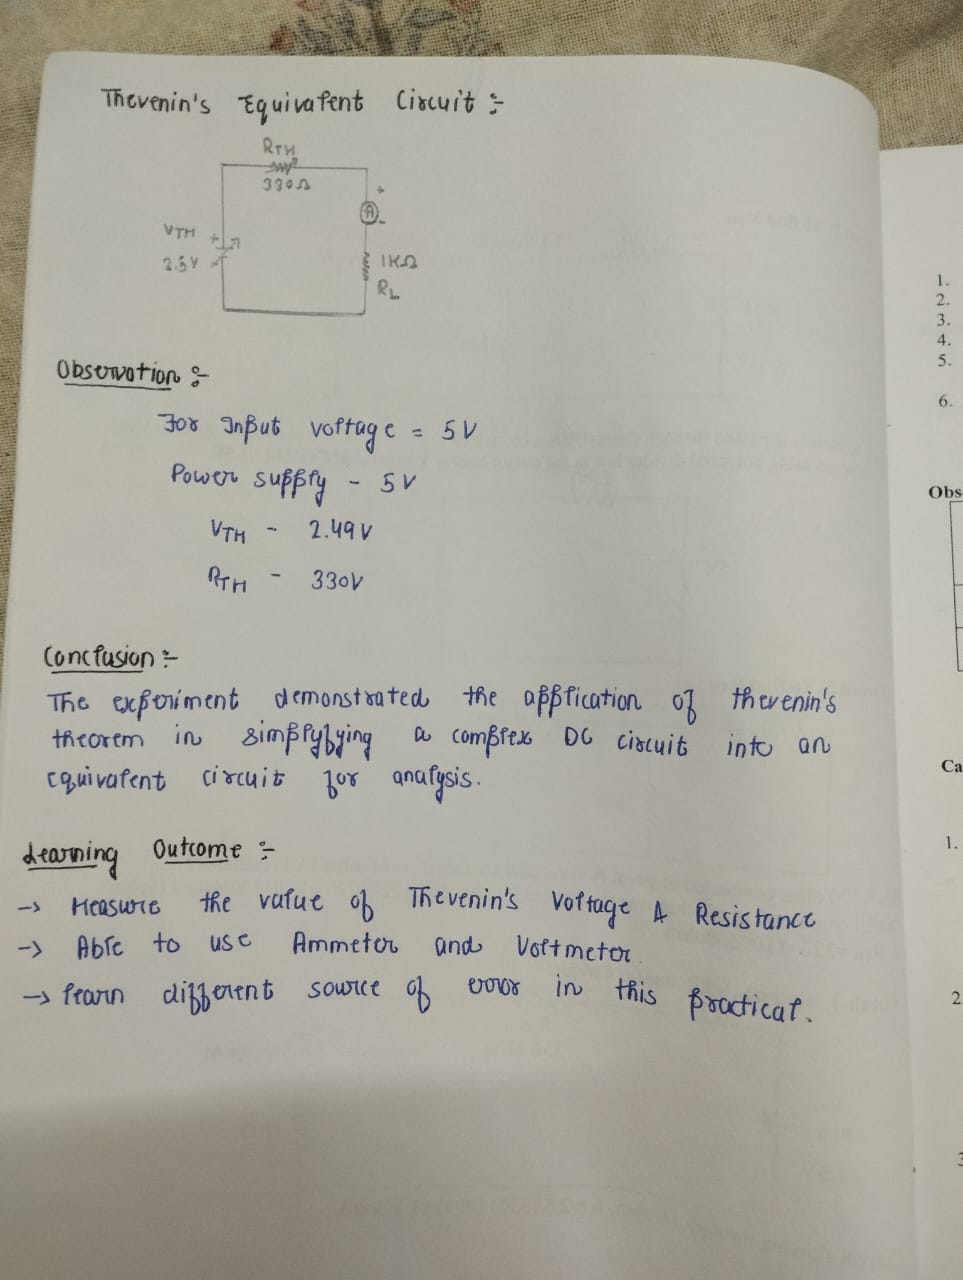 Thevenin's Equivalent Circuit :-
RTH
330Ω
+
A
-
VTH +
2.5V
1KΩ
RL
Observation :-
For Input voltage = 5V
Power supply - 5V
VTH - 2.49V
RTH - 330V
Conclusion :-
The experiment demonstrated the application of thevenin's
theorem in simplyfying a complex DC circuit into an
equivalent circuit for analysis.
Learning Outcome :-
→ Measure the value of Thevenin's Voltage & Resistance
→ Able to use Ammeter and Voltmeter.
→ learn different source of error in this practical.
1.
2.
3.
4.
5.
6.
Obs
Ca
1.
2
3